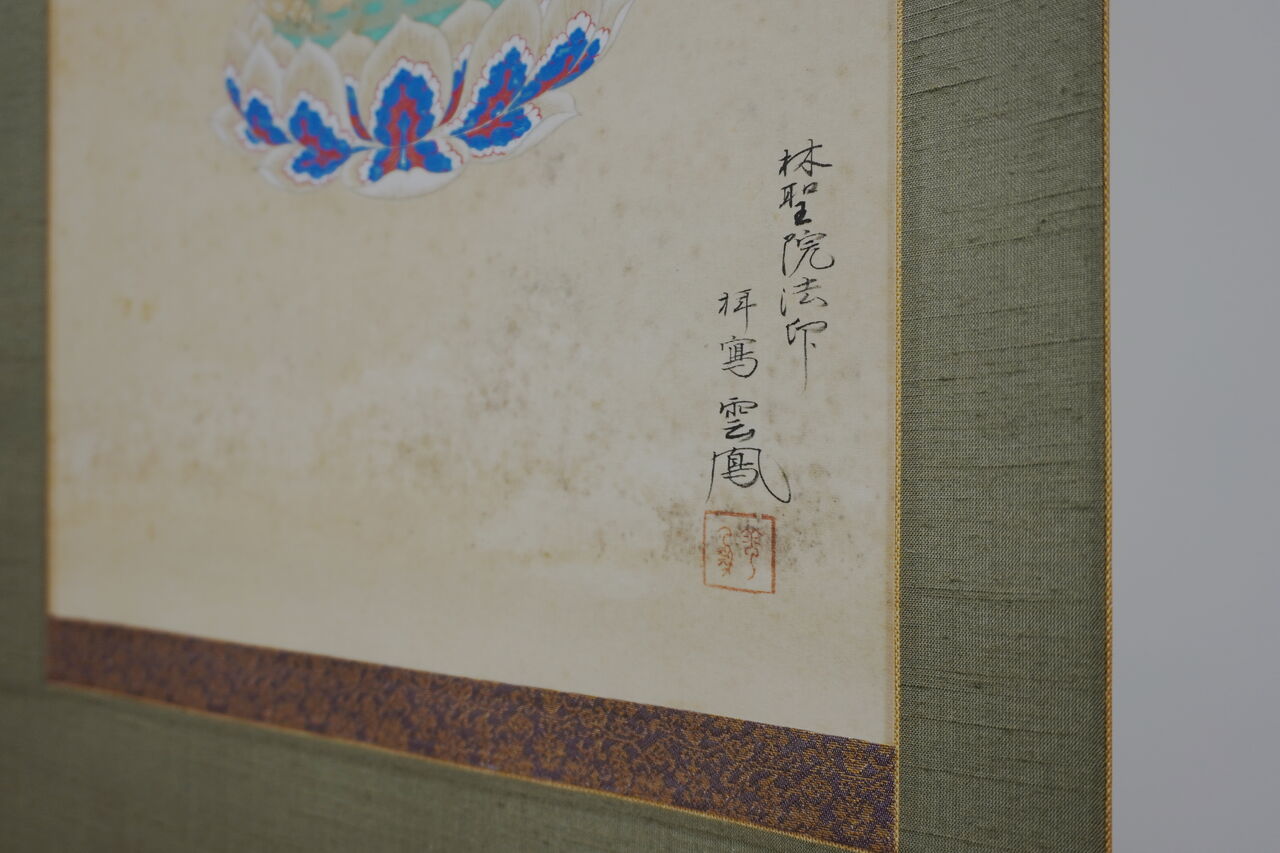 林聖院法印
拝寫 雲鳳